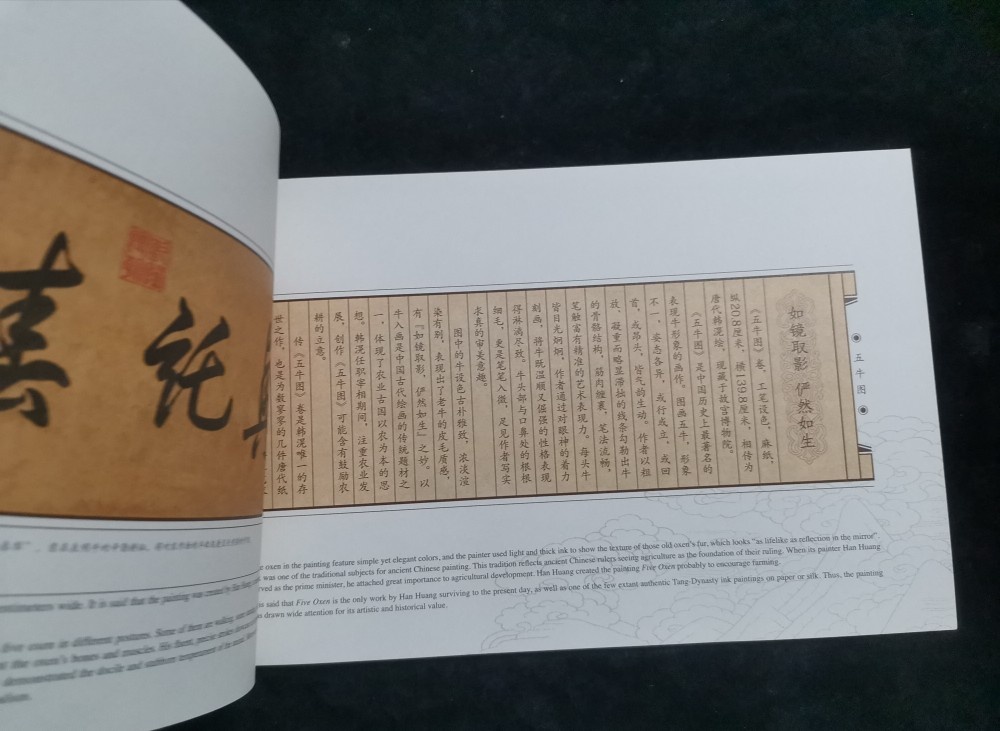 五牛图
如镜取影 俨然如生
《五牛图》卷，工笔设色，麻纸，
纵20.8厘米，横139.8厘米，相传为
唐代韩滉绘，现藏于故宫博物院。
《五牛图》是中国历史上最著名的
表现牛形象的画作。图画五牛，形象
不一，姿态各异，或行或立，或回
首，或昂头，皆气韵生动。作者以粗
放、凝重而略显滞拙的线条勾勒出牛
的骨骼结构，筋肉缠裹，笔法流畅，
笔触富有精准的艺术表现力。每头牛
皆目光炯炯，作者通过对眼神的着力
刻画，将牛既温顺又倔强的性格表现
得淋漓尽致。牛头部与口鼻处的根根
细毛，更是笔笔入微，足见作者写实
求真的审美意趣。
图中的牛设色古朴雅致，浓淡渲
染有别，表现出了老牛的皮毛质感，
有『如镜取影，俨然如生』之妙。以
牛入画是中国古代绘画的传统题材之
一，体现了农业古国以农为本的思
想。韩滉任职宰相期间，注重农业发
展，创作《五牛图》可能含有鼓励农
耕的立意。
传《五牛图》卷是韩滉唯一的存
世之作，也是为数寥寥的几件唐代纸
oxen in the painting feature simple yet elegant colors, and the painter used light and thick ink to show the texture of those old oxen's fur, which looks "as lifelike as reflection in the mirror"
was one of the traditional subjects for ancient Chinese painting. This tradition reflects ancient Chinese rulers seeing agriculture as the foundation of their ruling. When its painter Han Huang
rved as the prime minister, he attached great importance to agricultural development. Han Huang created the painting Five Oxen probably to encourage farming.
said that Five Oxen is the only work by Han Huang surviving to the present day, as well as one of the few extant authentic Tang-Dynasty ink paintings on paper or silk. Thus, the painting
drawn wide attention for its artistic and historical value.
wide. It is said that the painting was created by
five oxen in different postures. Some of them are walking,
the oxen's bones and muscles. His fluent, precise strokes
demonstrated the docile and stubborn temperament of